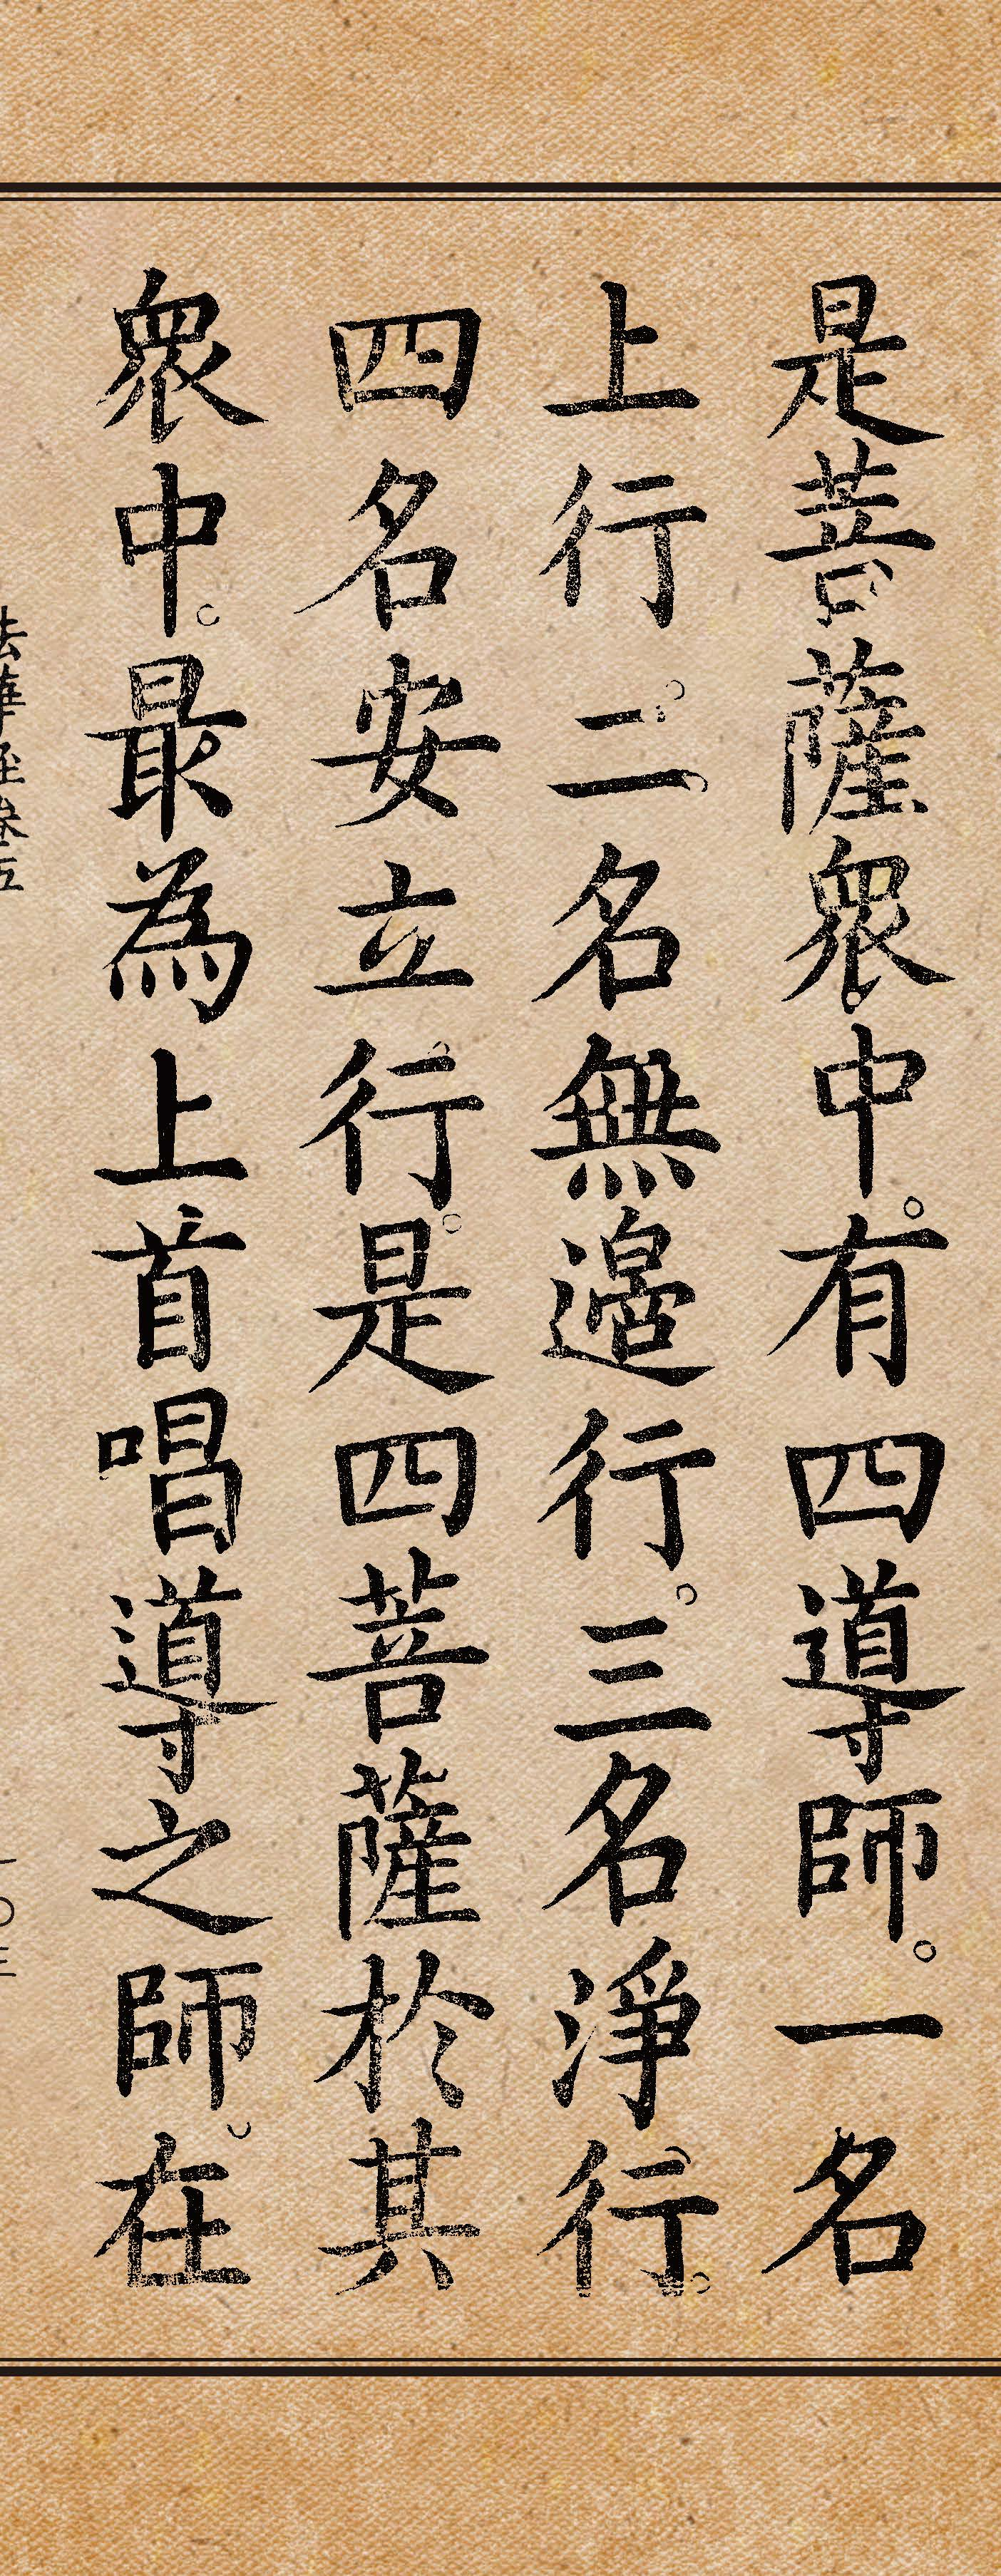 是菩薩衆中。有四導師。一名
上行。二名無邊行。三名淨行。
四名安立行。是四菩薩於其
衆中。最為上首唱導之師。在
法華經卷五
一〇三